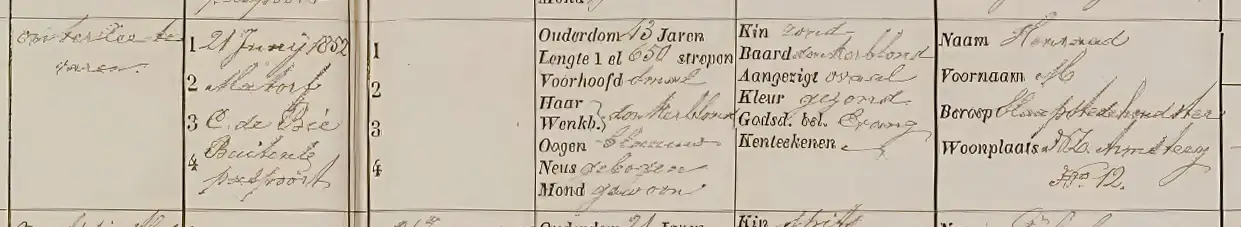 paspoort
Mond
buitenslee te
varen.
1 21 Junij 1852
2
3 C. de Bie
4 Buitenl.
paspoort
1
2
3
4
Ouderdom 43 Jaren
Lengte 1 el 650 strepen
Voorhoofd smal
Haar
Wenkb. } donkerblond
Oogen blaauw
Neus gebogen
Mond gewoon
Kin rond
Baard donkerblond
Aangezigt ovaal
Kleur gezond
Godsd. bel. Evang
Kenteekenen
Naam
Voornaam M
Beroep Slaapstedehoudster
Woonplaats NZ. Armsteeg
No. 12.
Ouderdom 21 Jaren
Kin spits